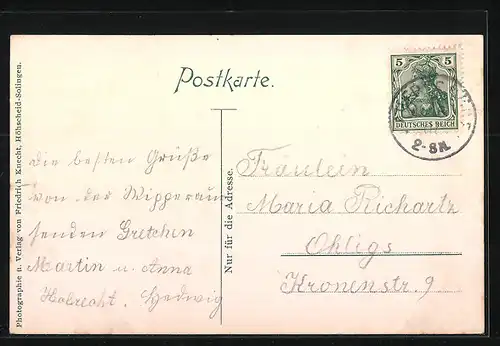 Postkarte.
5 5
DEUTSCHES REICH
2-3N.
Die besten Grüße
von der Wipperau
senden Gretchen
Martin u. Anna
Hedwig
Fräulein
Maria Richartz
Ohligs
Kronenstr. 9
Nur für die Adresse.
Photographie u. Verlag von Friedrich Knecht, Höhscheid-Solingen.